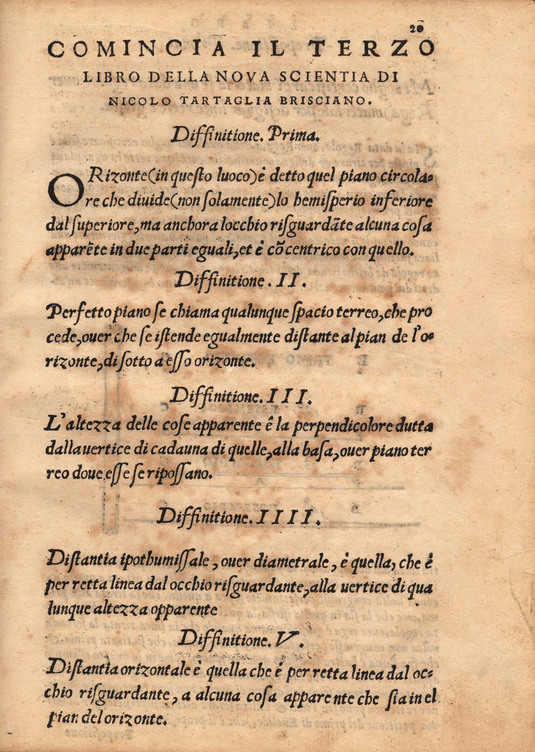 20
COMINCIA IL TERZO
LIBRO DELLA NOVA SCIENTIA DI
NICOLO TARTAGLIA BRISCIANO.
Diffinitione. Prima.
ORizonte(in questo luoco)è detto quel piano circola-
re che diuide(non solamente)lo hemisperio inferiore
dal superiore, ma anchora locchio risguardãte alcuna cosa
apparẽte in due parti eguali, et è cõcentrico con quello.
Diffinitione. II.
Perfetto piano se chiama qualunque spacio terreo, che pro
cede, ouer che se istende egualmente distante al pian de l'o-
rizonte, di sotto a esso orizonte.
Diffinitione. III.
L'altezza delle cose apparente è la perpendicolore dutta
dalla vertice di cadauna di quelle, alla basa, ouer piano ter
reo doue esse se ripossano.
Diffinitione. IIII.
Distantia ipothumissale, ouer diametrale, è quella, che è
per retta linea dal occhio risguardante, alla vertice di qua
lunque altezza opparente
Diffinitione. V.
Distantia orizontale è quella che è per retta linea dal oc-
chio risguardante, a alcuna cosa apparente che sia in el
pian del orizonte.